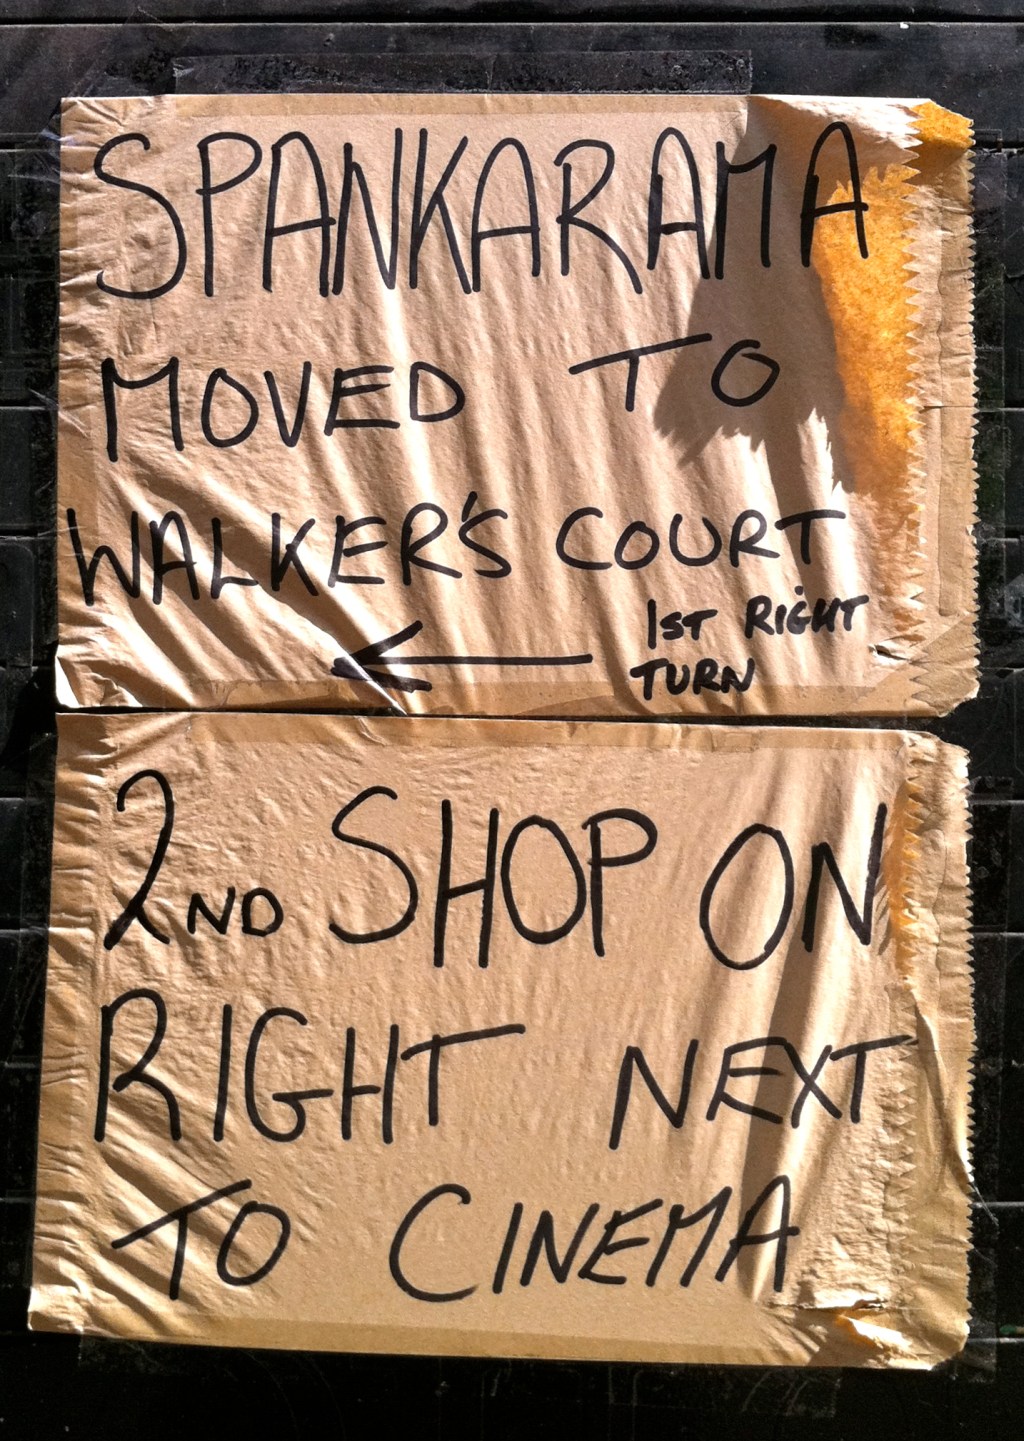 SPANKARAMA
MOVED TO
WALKER'S COURT
← 1ST RIGHT
TURN
2ND SHOP ON
RIGHT NEXT
TO CINEMA